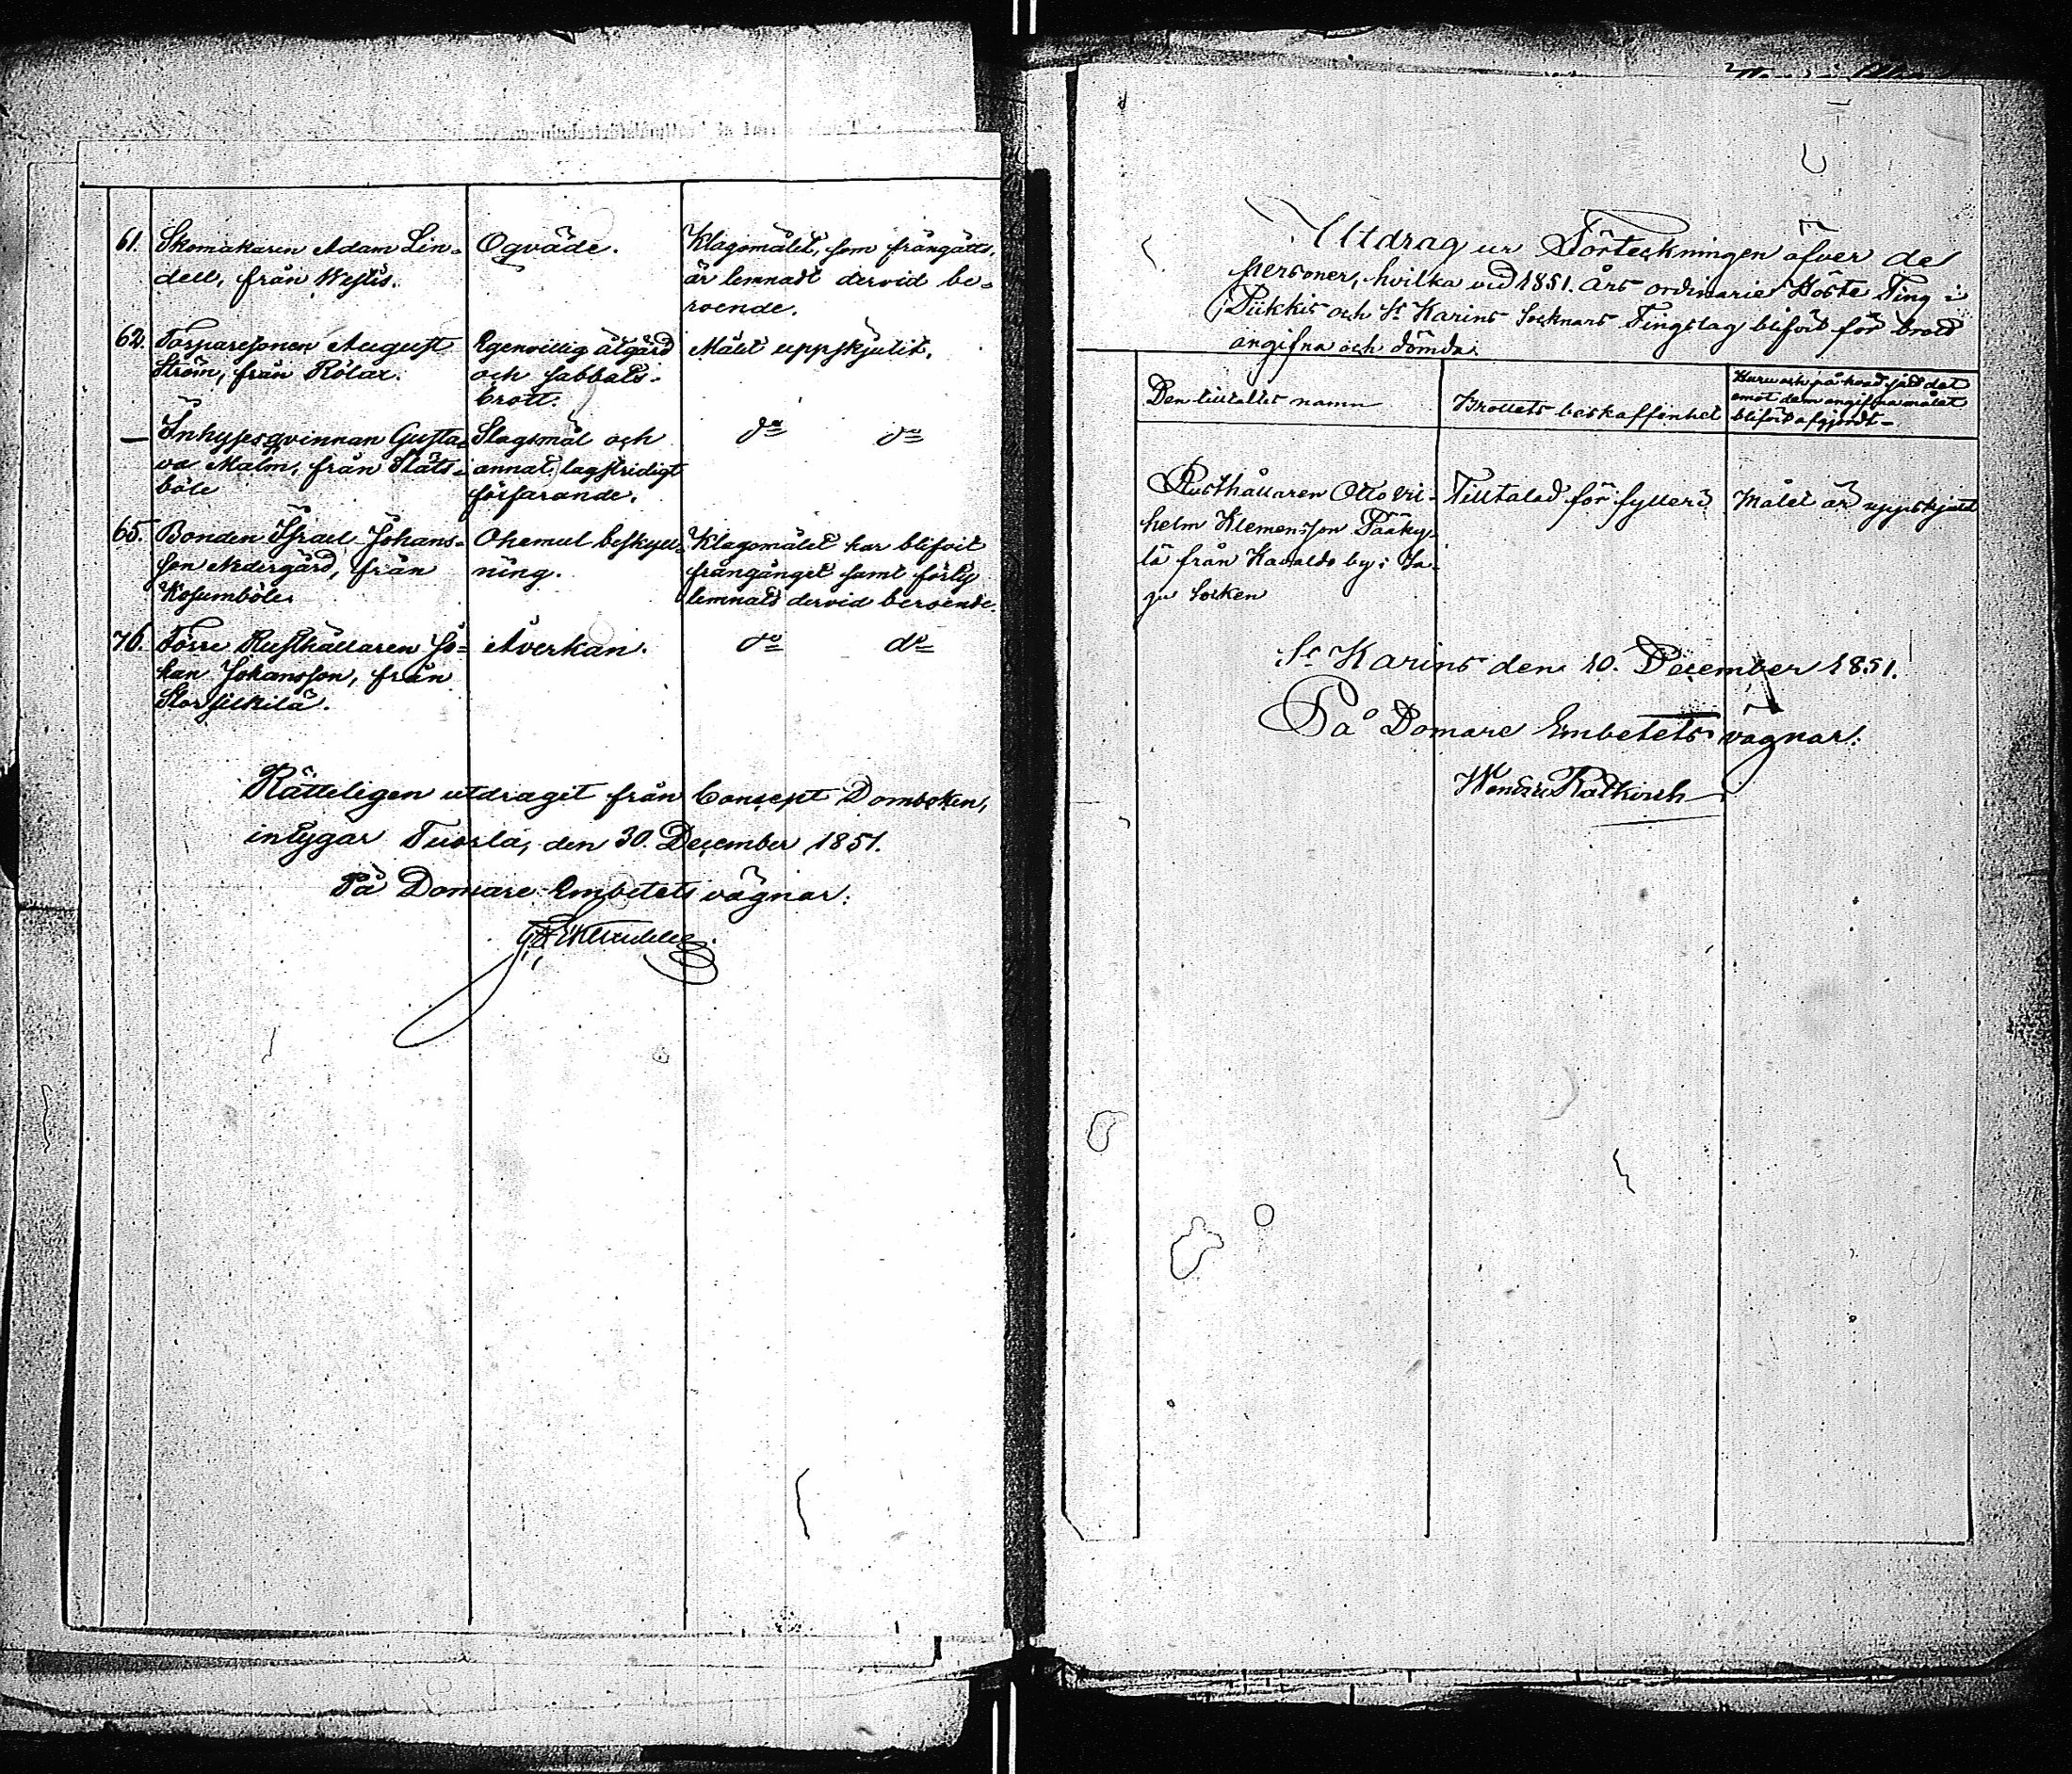 61. Skomakaren Adam Lin-
dell, från Westis.
Oqväde.
Klagomålet, som frångåtts,
är lemnadt dervid be-
roende.
62. Torparesonen August
Ström, från Rölax.
Egenvillig åtgärd
och sabbats-
brott.
Målet uppskjutit.
— Inhysesqvinnan Gusta-
va Malm, från Stäts-
böle
Slagsmål och
annat lagstridigt
förfarande.
do do
65. Bonden Israel Johans-
son Nedergård, från
Kosumböle.
Ohemul beskyll-
ning.
Klagomålet har blifvit
frångånget samt förty
lemnats dervid beroende.
76. Förre Rusthållaren Jo-
han Johansson, från
Storfilkilä.
Åverkan.
do do
Rätteligen utdraget från Concept Domboken,
intygar Tuorla, den 30. December 1851.
På Domare-Embetets vägnar:
Utdrag ur Förteckningen öfver de
personer, hvilka vid 1851. Års ordinarie Höste Ting i
Piikkis och St Karins Socknars Tingslag blifvit för brott
angifna och dömda.
Den tilltaltes namn
Brottets beskaffenhet
Huru och på hvad sätt det
emot dem angifna målet
blifvit afgjordt-
Rusthållaren Otto Vil-
helm Klemensson Pääky-
lä från Kavaldo by i Sa-
gu Socken
Tilltalad för fylleri
Målet är uppskjutit
St Karins den 10. December 1851.
På Domare Embetets vägnar: